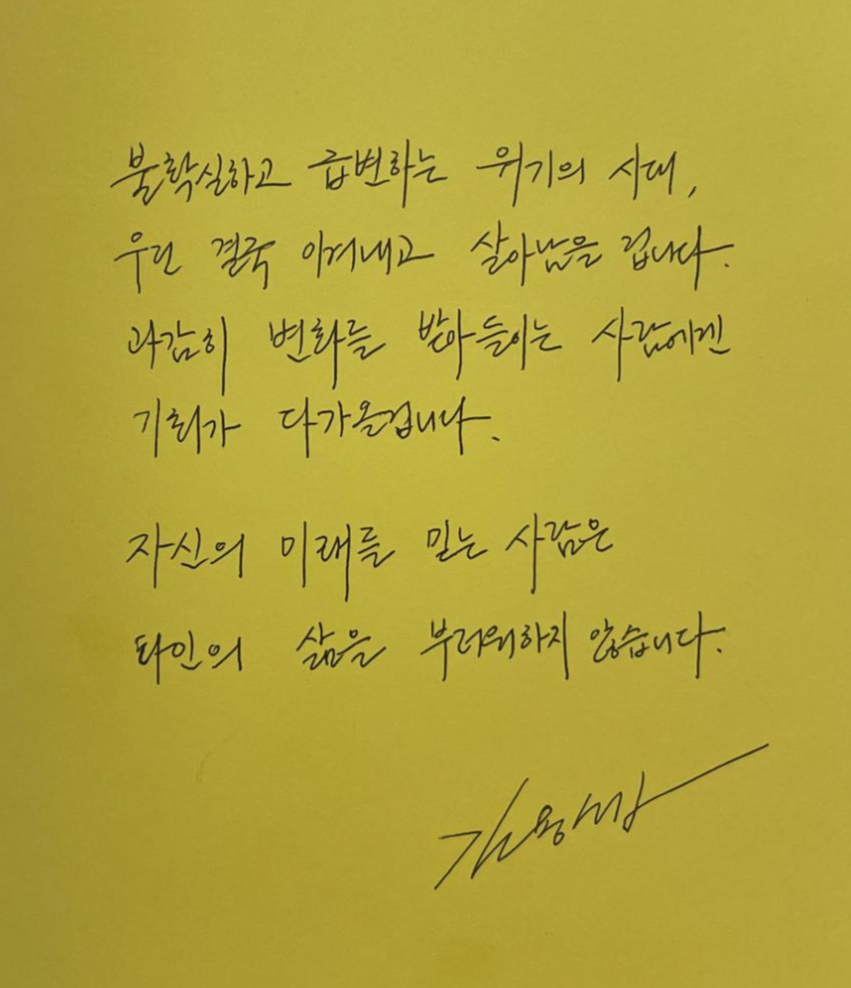 불확실하고 급변하는 위기의 시대,
우린 결국 이겨내고 살아남을 겁니다.
과감히 변화를 받아들이는 사람에겐
기회가 다가올겁니다.
자신의 미래를 믿는 사람은
타인의 삶을 부러워하지 않습니다.